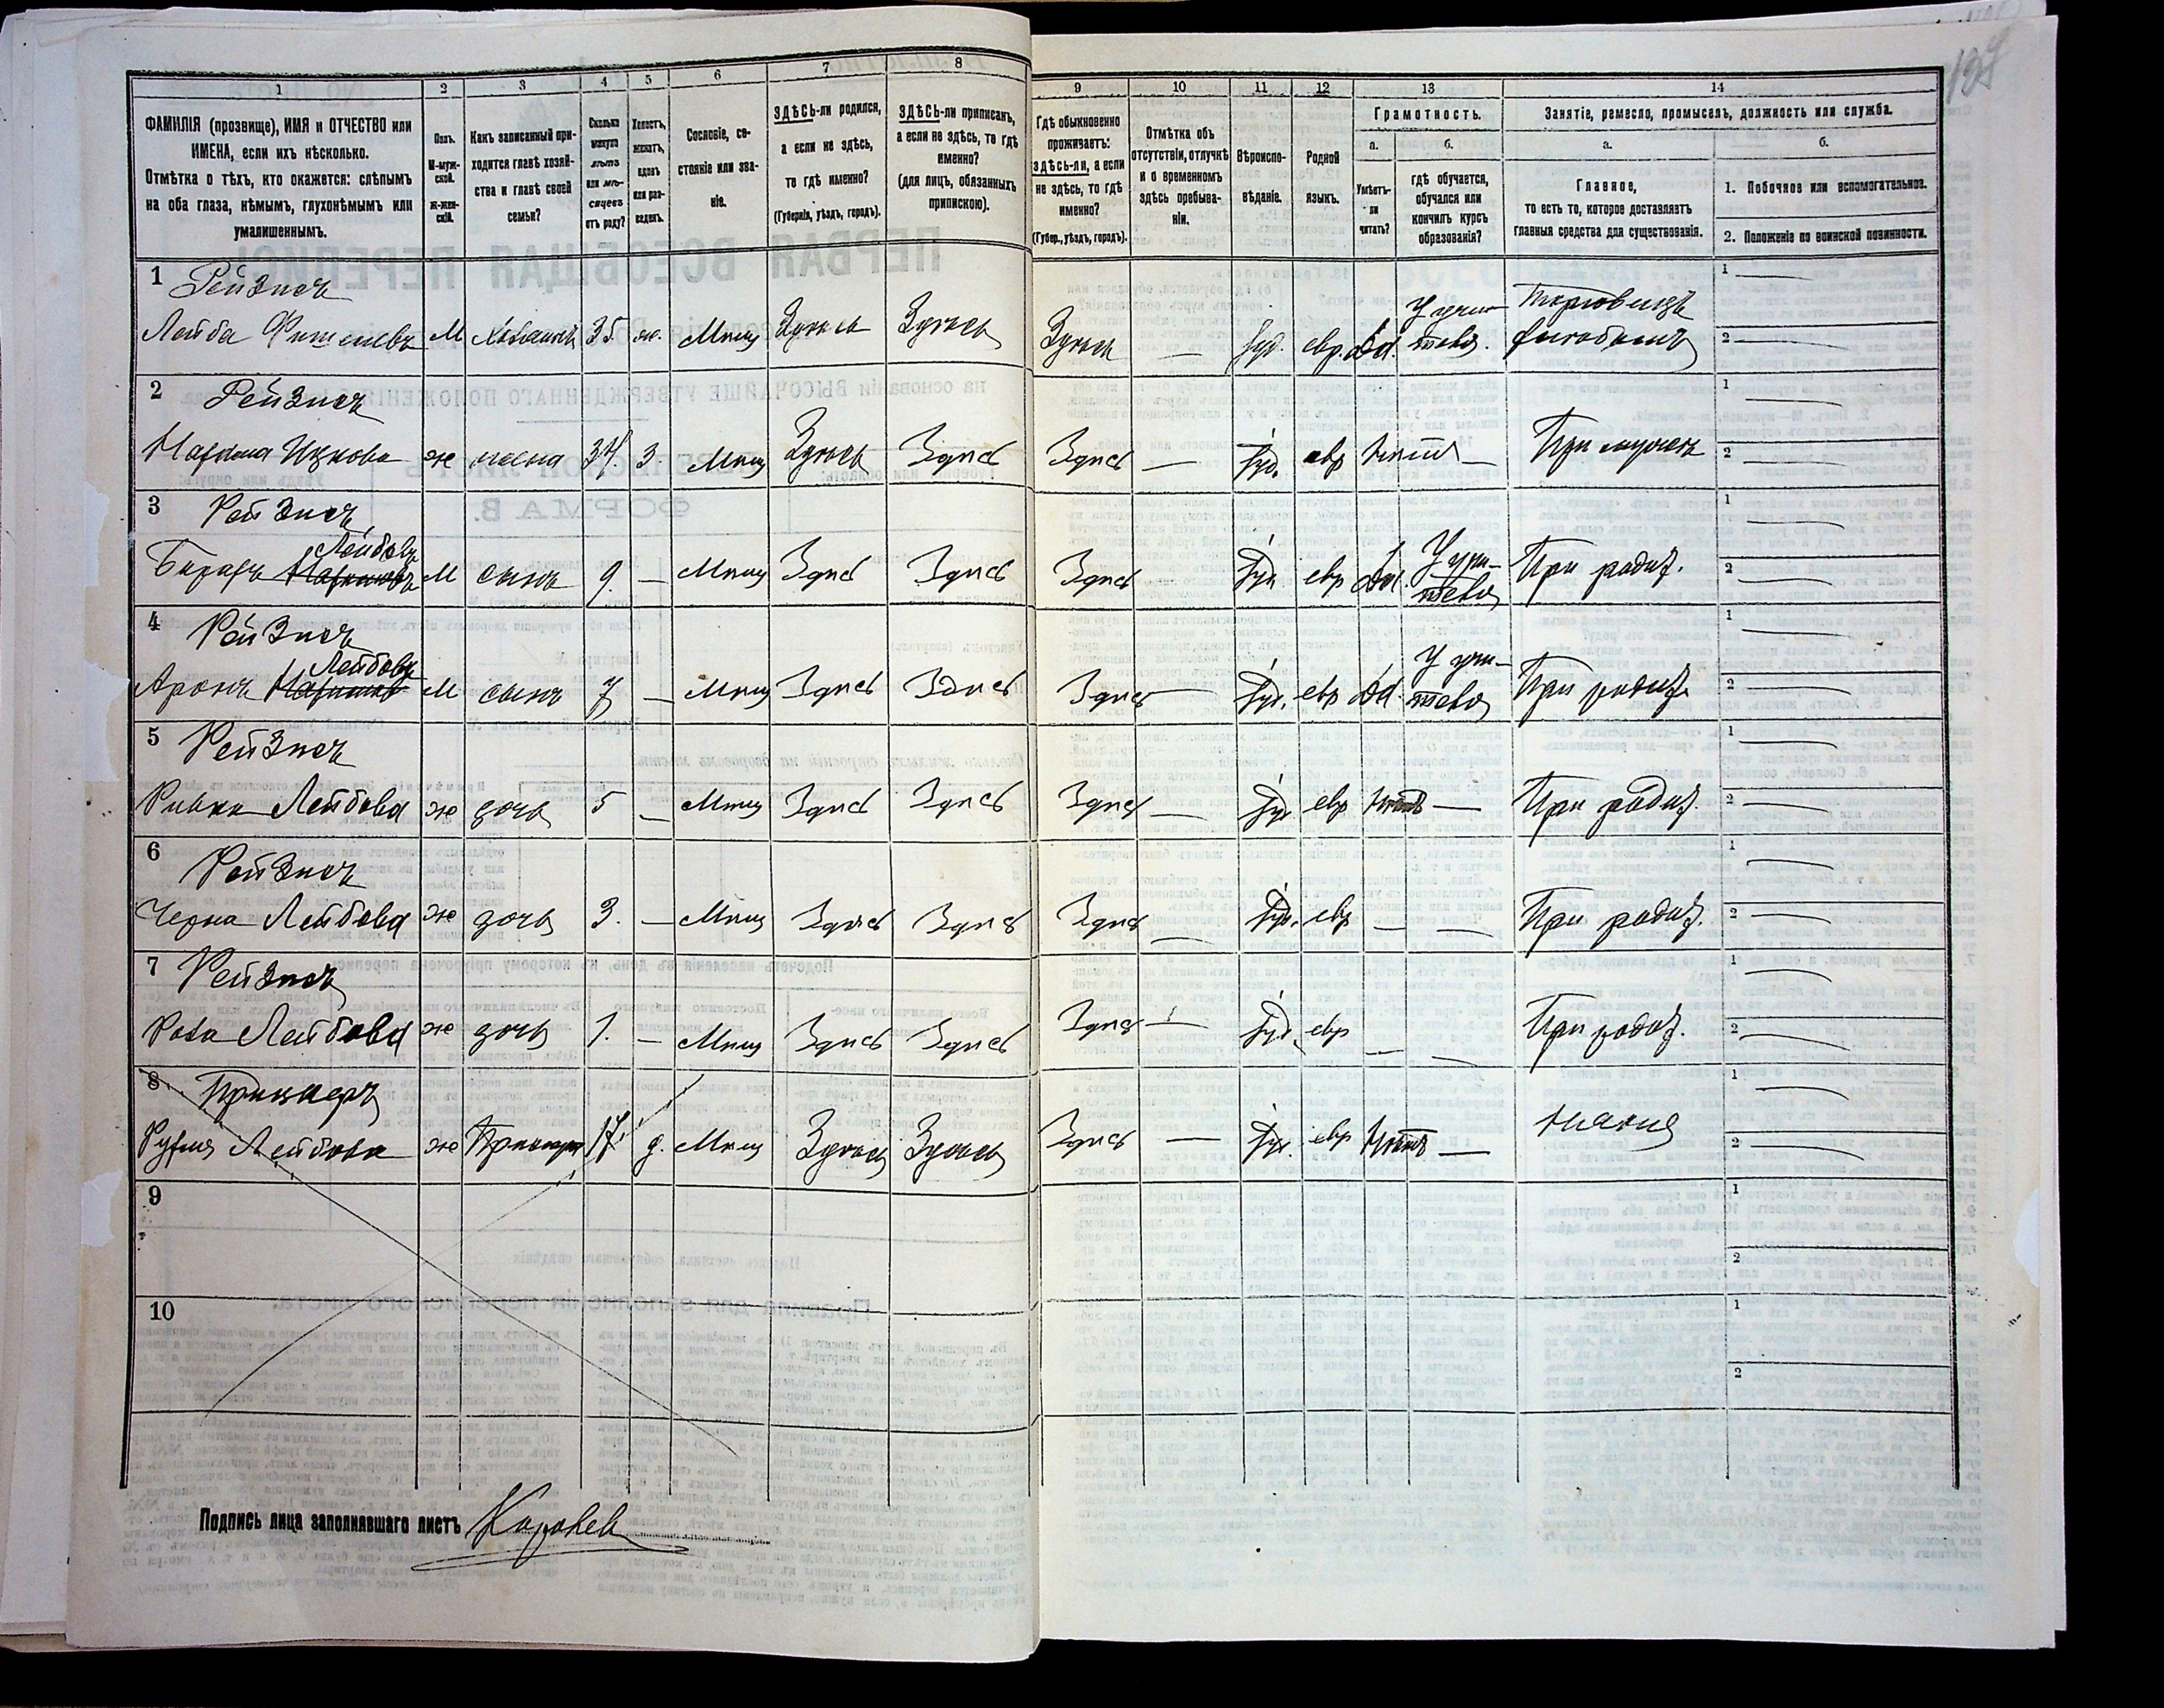 127
1 2 3 4 5 6 7 8 9 10 11 12 13 14
ФАМИЛІЯ (прозвище), ИМЯ и ОТЧЕСТВО или
ИМЕНА, если ихъ нѣсколько.
Отмѣтка о тѣхъ, кто окажется: слѣпымъ
на оба глаза, нѣмымъ, глухонѣмымъ или
умалишеннымъ.
Полъ.
М-муж-
ской.
ж-жен-
скій.
Какъ записанный при-
ходится главѣ хозяй-
ства и главѣ своей
семьи?
Сколько
минуло
лѣтъ
или мѣ-
сяцевъ
отъ роду?
Холостъ,
женатъ,
вдовъ
или раз-
веденъ.
Сословіе, со-
стояніе или зва-
ніе.
ЗДѢСЬ-ли родился,
а если не здѣсь,
то гдѣ именно?
(Губернія, уѣздъ, городъ).
ЗДѢСЬ-ли приписанъ,
а если не здѣсь, то гдѣ
именно?
(для лицъ, обязанныхъ
припискою).
Гдѣ обыкновенно
проживаетъ:
здѣсь-ли, а если
не здѣсь, то гдѣ
именно?
(Губер., уѣздъ, городъ).
Отмѣтка объ
отсутствіи, отлучкѣ
и о временномъ
здѣсь пребыва-
ніи.
Вѣроиспо-
вѣданіе.
Родной
языкъ.
Грамотность.
а.
Умѣетъ-
ли
читать?
б.
гдѣ обучается,
обучался или
кончилъ курсъ
образованія?
Занятіе, ремесло, промыселъ, должность или служба.
а.
Главное,
то есть то, которое доставляетъ
главныя средства для существованія.
б.
1. Побочное или вспомогательное.
2. Положеніе по воинской повинности.
1 Рейзисъ
Лейба М Хозяинъ 35. ж. Мѣщ Здѣсь Здѣсь Здѣсь — Іуд. евр. Да. У учи-
теля. 1 —
2 —
2 Рейзисъ
Ицкова ж жена 34. З. Мѣщ Здѣсь Здѣсь Здѣсь — Іуд. евр Нѣтъ — При мужѣ 1 —
2 —
3 Рейзисъ
Лейбовъ
М сынъ 9. — Мѣщ Здѣсь Здѣсь Здѣсь Іуд евр Да. У учи-
теля При родит. 1 —
2 —
4 Рейзисъ
Лейбовъ
Аронъ М сынъ 7 — Мѣщ Здѣсь Здѣсь Здѣсь — Іуд. евр Да. У учи-
теля При родит. 1 —
2 —
5 Рейзисъ
Ривка Лейбова ж дочь 5 — Мѣщ Здѣсь Здѣсь Здѣсь — Іуд евр Нѣтъ — При родит. 1 —
2 —
6 Рейзисъ
Черна Лейбова ж дочь 3. — Мѣщ Здѣсь Здѣсь Здѣсь — Іуд. евр — — При родит. 1 —
2 —
7 Рейзисъ
Роза Лейбова ж дочь 1. — Мѣщ Здѣсь Здѣсь Здѣсь — Іуд. евр — — При родит. 1 —
2 —
8
Лейбова ж 17. д. Мѣщ Здѣсь Здѣсь Здѣсь — Іуд. евр Нѣтъ — 1 —
2 —
9 1
2
10 1
2
Подпись лица заполнявшаго листъ